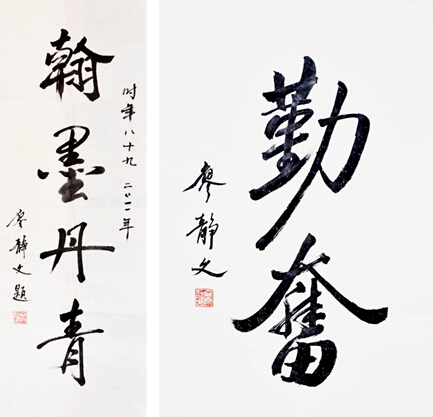 翰墨丹青
时年八十九 二〇一一年
廖静文题
勤奮
廖静文